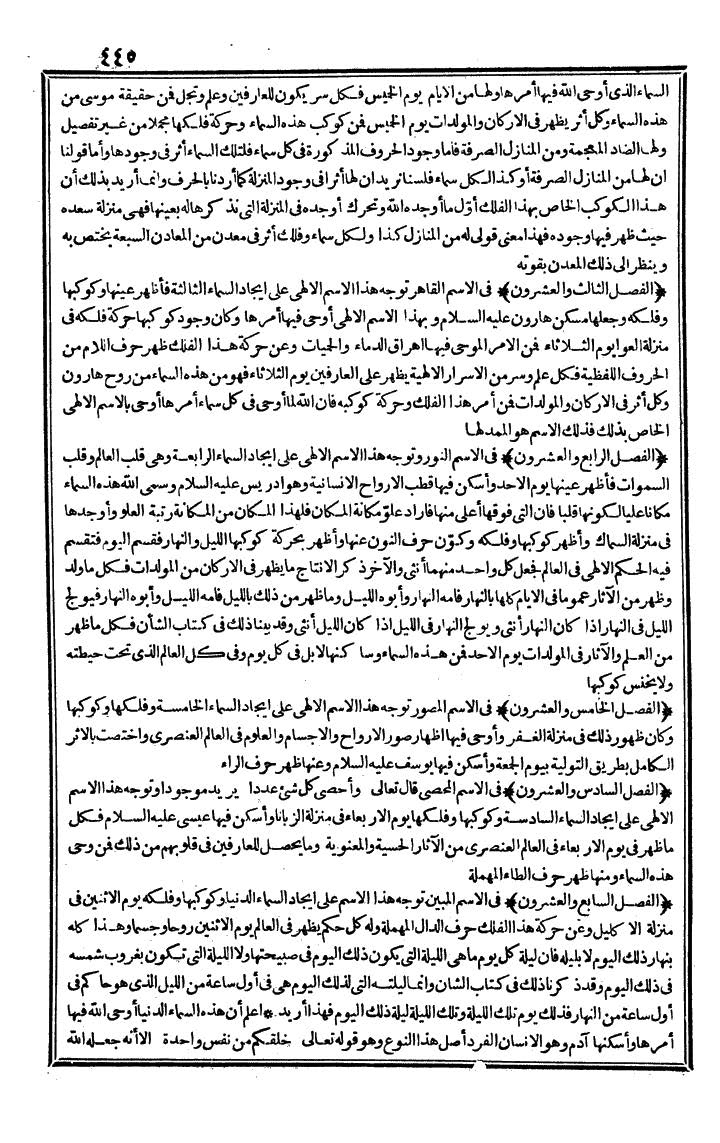 ٤٤٥
السماء الذى أوحى الله فيها أمرها ولها من الايام يوم الخيس فكل سر يكون للعارفين وعلم وتجل فمن حقيقة موسى من
هذه السماء وكل أثر يظهر فى الاركان والمولدات يوم الخيس فمن كوكب هذه السماء وحركة فلكها مجملا من غير تفصيل
ولها الضاد المعجمة ومن المنازل الصرفة فاما وجود الحروف المذكورة فى كل سماء فلتلك السماء أثر فى وجودها وأما قولنا
ان لها من المنازل الصرفة أو كذا لكل سماء فلسنا نريد ان لها أثرا فى وجود المنزلة كما أردنا بالحرف وانما أريد بذلك أن
هذا الكوكب الخاص بهذا الفلك أول ما أوجده الله وتحرك أوجده فى المنزلة التى نذكرها له بعينها فهى منزلة سعده
حيث ظهر فيها وجوده فهذا معنى قولى له من المنازل كذا ولكل سماء وفلك أثر فى معدن من المعادن السبعة يختص به
وينظر الى ذلك المعدن بقوته
﴿الفصل الثالث والعشرون﴾ فى الاسم القاهر توجه هذا الاسم الالهى على ايجاد السماء الثالثة فأظهر عينها وكوكبها
وفلكه وجعلها مسكن هارون عليه السلام وبهذا الاسم الالهى أوحى فيها أمرها وكان وجود كوكبها حركة فلكه فى
منزلة العوا يوم الثلاثاء فمن الامر الموحى فيها اهراق الدماء والحميات وعن حركة هذا الفلك ظهر حرف اللام من
الحروف اللفظية فكل علم وسر من الاسرار الالهية يظهر على العارفين يوم الثلاثاء فهو من هذه السماء من روح هارون
وكل أثر فى الاركان والمولدات فمن أمر هذا الفلك وحركة كوكبه فان الله لما أوحى فى كل سماء أمرها أوحى بالاسم الالهى
الخاص بذلك فذلك الاسم هو الممد لها
﴿الفصل الرابع والعشرون﴾ فى الاسم النور وتوجه هذا الاسم الالهى على ايجاد السماء الرابعة وهى قلب العالم وقلب
السموات فأظهر عينها يوم الاحد وأسكن فيها قطب الارواح الانسانية وهو ادريس عليه السلام وسمى الله هذه السماء
مكانا عليا لكونها قلبا فان التى فوقها أعلى منها فأراد علو مكانة المكان فلهذا المكان من المكانة رتبة العلو وأوجدها
فى منزلة السماك وأظهر كوكبها وفلكه وكون حرف النون عنها وأظهر بحركة كوكبها الليل والنهار فقسم اليوم فتقسم
فيه الحكم الالهى فى العالم فجعل كل واحد منهما أنثى والآخر ذكرا لانتاج ما يظهر فى الاركان من المولدات فكل ما ولد
وظهر من الآثار عموما فى الايام كلها بالنهار فامه النهار وأبوه الليل وما ظهر من ذلك بالليل فامه الليل وأبوه النهار فيولج
الليل فى النهار اذا كان النهار أنثى ويولج النهار فى الليل اذا كان الليل أنثى وقد بينا ذلك فى كتاب الشأن فكل ما ظهر
من العلم والآثار فى المولدات يوم الاحد فمن هذه السماء وساكنها لا بل فى كل يوم وفى كل العالم الذى تحت حيطته
ولا يخنس كوكبها
﴿الفصل الخامس والعشرون﴾ فى الاسم المصور توجه هذا الاسم الالهى على ايجاد السماء الخامسة وفلكها وكوكبها
وكان ظهور ذلك فى منزلة الغفر وأوحى فيها اظهار صور الارواح والاجسام والعلوم فى العالم العنصرى واختصت بالاثر
الكامل بطريق التولية بيوم الجمعة وأسكن فيها يوسف عليه السلام وعنها ظهر حرف الراء
﴿الفصل السادس والعشرون﴾ فى الاسم المحصى قال تعالى وأحصى كل شئ عددا يريد موجودا وتوجه هذا الاسم
الالهى على ايجاد السماء السادسة وكوكبها وفلكها يوم الاربعاء فى منزلة الزبانا وأسكن فيها عيسى عليه السلام فكل
ما ظهر فى يوم الاربعاء فى العالم العنصرى من الآثار الحسية والمعنوية وما يحصل للعارفين فى قلوبهم من ذلك فمن وحى
هذه السماء ومنها ظهر حرف الطاء المهملة
﴿الفصل السابع والعشرون﴾ فى الاسم المبين توجه هذا الاسم على ايجاد السماء الدنيا وكوكبها وفلكه يوم الاثنين فى
منزلة الاكليل وعن حركة هذا الفلك حرف الدال المهملة وله كل حكم يظهر فى العالم يوم الاثنين روحا وجسما وهذا كله
بنهار ذلك اليوم لا بليله فان ليلة كل يوم ما هى الليلة التى يكون ذلك اليوم فى صبيحتها ولا الليلة التى تكون بغروب شمسه
فى ذلك اليوم وقد ذكرنا ذلك فى كتاب الشان وانما ليلته التى لذلك اليوم هى فى أول ساعة من الليل الذى هو حاكم فى
أول ساعة من النهار فذلك يوم تلك الليلة وتلك الليلة ليلة ذلك اليوم فهذا أريد * اعلم أن هذه السماء الدنيا أوحى الله فيها
أمرها وأسكنها آدم وهو الانسان الفرد أصل هذا النوع وهو قوله تعالى خلقكم من نفس واحدة الا أنه جعله الله